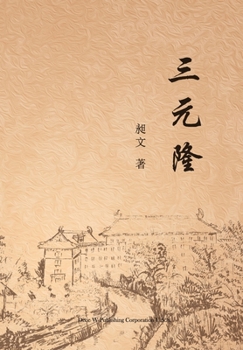 三元隆
昶文 著
Dixie W Publishing Corporation U.S.A.